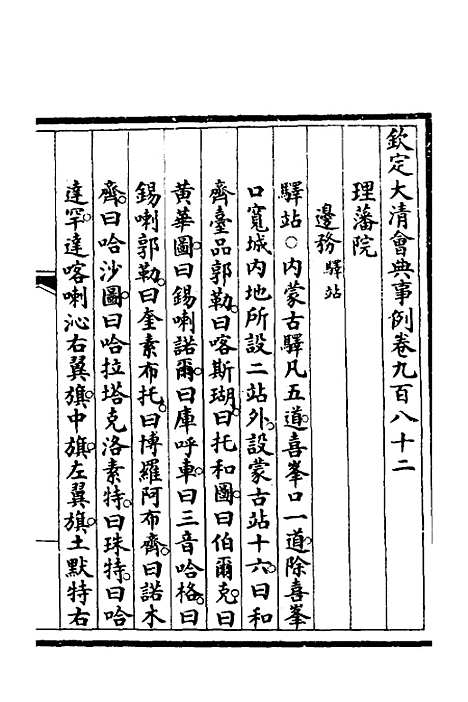 欽定大清會典事例卷九百八十二
理藩院
邊務驛站
驛站○內蒙古驛凡五道喜峯口一道除喜峯
口寬城內地所設二站外設蒙古站十六曰和
齊臺品郭勒曰喀斯瑚曰托和圖曰伯爾克曰
黃華圖曰錫喇諾爾曰庫呼車曰三音哈格曰
錫喇郭勒曰奎素布托曰博羅阿布齊曰諾木
齊曰哈沙圖曰哈拉塔克洛素特曰珠特曰哈
達罕達喀喇沁右翼旗中旗左翼旗土默特右